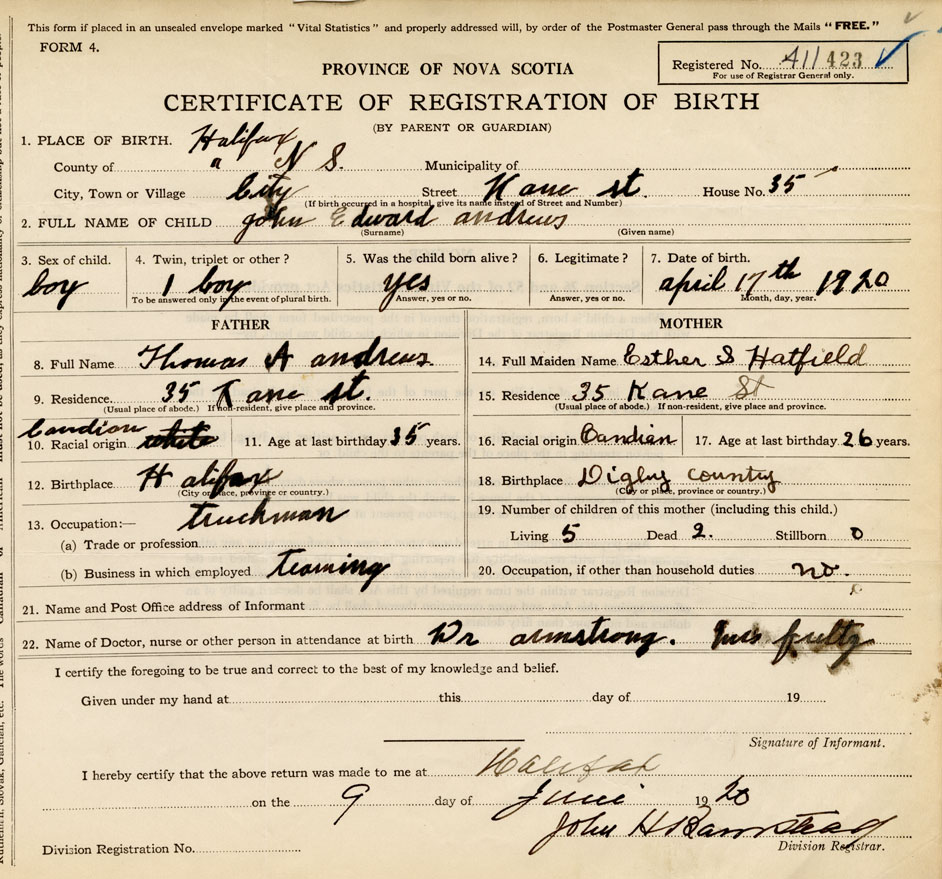 This form if placed in an unsealed envelope marked "Vital Statistics" and properly addressed will, by order of the Postmaster General pass through the Mails "FREE."
FORM 4.
Registered No. 411423
For use of Registrar General only.
PROVINCE OF NOVA SCOTIA
CERTIFICATE OF REGISTRATION OF BIRTH
(BY PARENT OR GUARDIAN)
1. PLACE OF BIRTH. Halifax
County of " N S. Municipality of
City, Town or Village City Street Kane st. House No. 35
(If birth occurred in a hospital, give its name instead of Street and Number)
2. FULL NAME OF CHILD john Edward andrews
(Surname) (Given name)
3. Sex of child. 4. Twin, triplet or other? 5. Was the child born alive? 6. Legitimate? 7. Date of birth.
boy 1 boy yes april 17th 1920
To be answered only in the event of plural birth. Answer, yes or no. Answer, yes or no. Month, day, year.
FATHER MOTHER
8. Full Name Thomas A andrews. 14. Full Maiden Name Esther S Hatfield
9. Residence. 35 Kane st. 15. Residence 35 Kane St
(Usual place of abode.) If non-resident, give place and province. (Usual place of abode.) If non-resident, give place and province.
Candian
10. Racial origin white 11. Age at last birthday 35 years. 16. Racial origin Candian 17. Age at last birthday 26 years.
12. Birthplace Halifax 18. Birthplace Digby country
(City or place, province or country.) (City or place, province or country.)
13. Occupation:— truckman 19. Number of children of this mother (including this child.)
(a) Trade or profession Living 5 Dead 2. Stillborn 0
(b) Business in which employed teaming 20. Occupation, if other than household duties no.
21. Name and Post Office address of Informant
22. Name of Doctor, nurse or other person in attendance at birth Dr armstrong.
I certify the foregoing to be true and correct to the best of my knowledge and belief.
Given under my hand at this day of 19
Signature of Informant.
I hereby certify that the above return was made to me at Halifax
on the 9 day of June 1920
John H Barnstead
Division Registration No. Division Registrar.